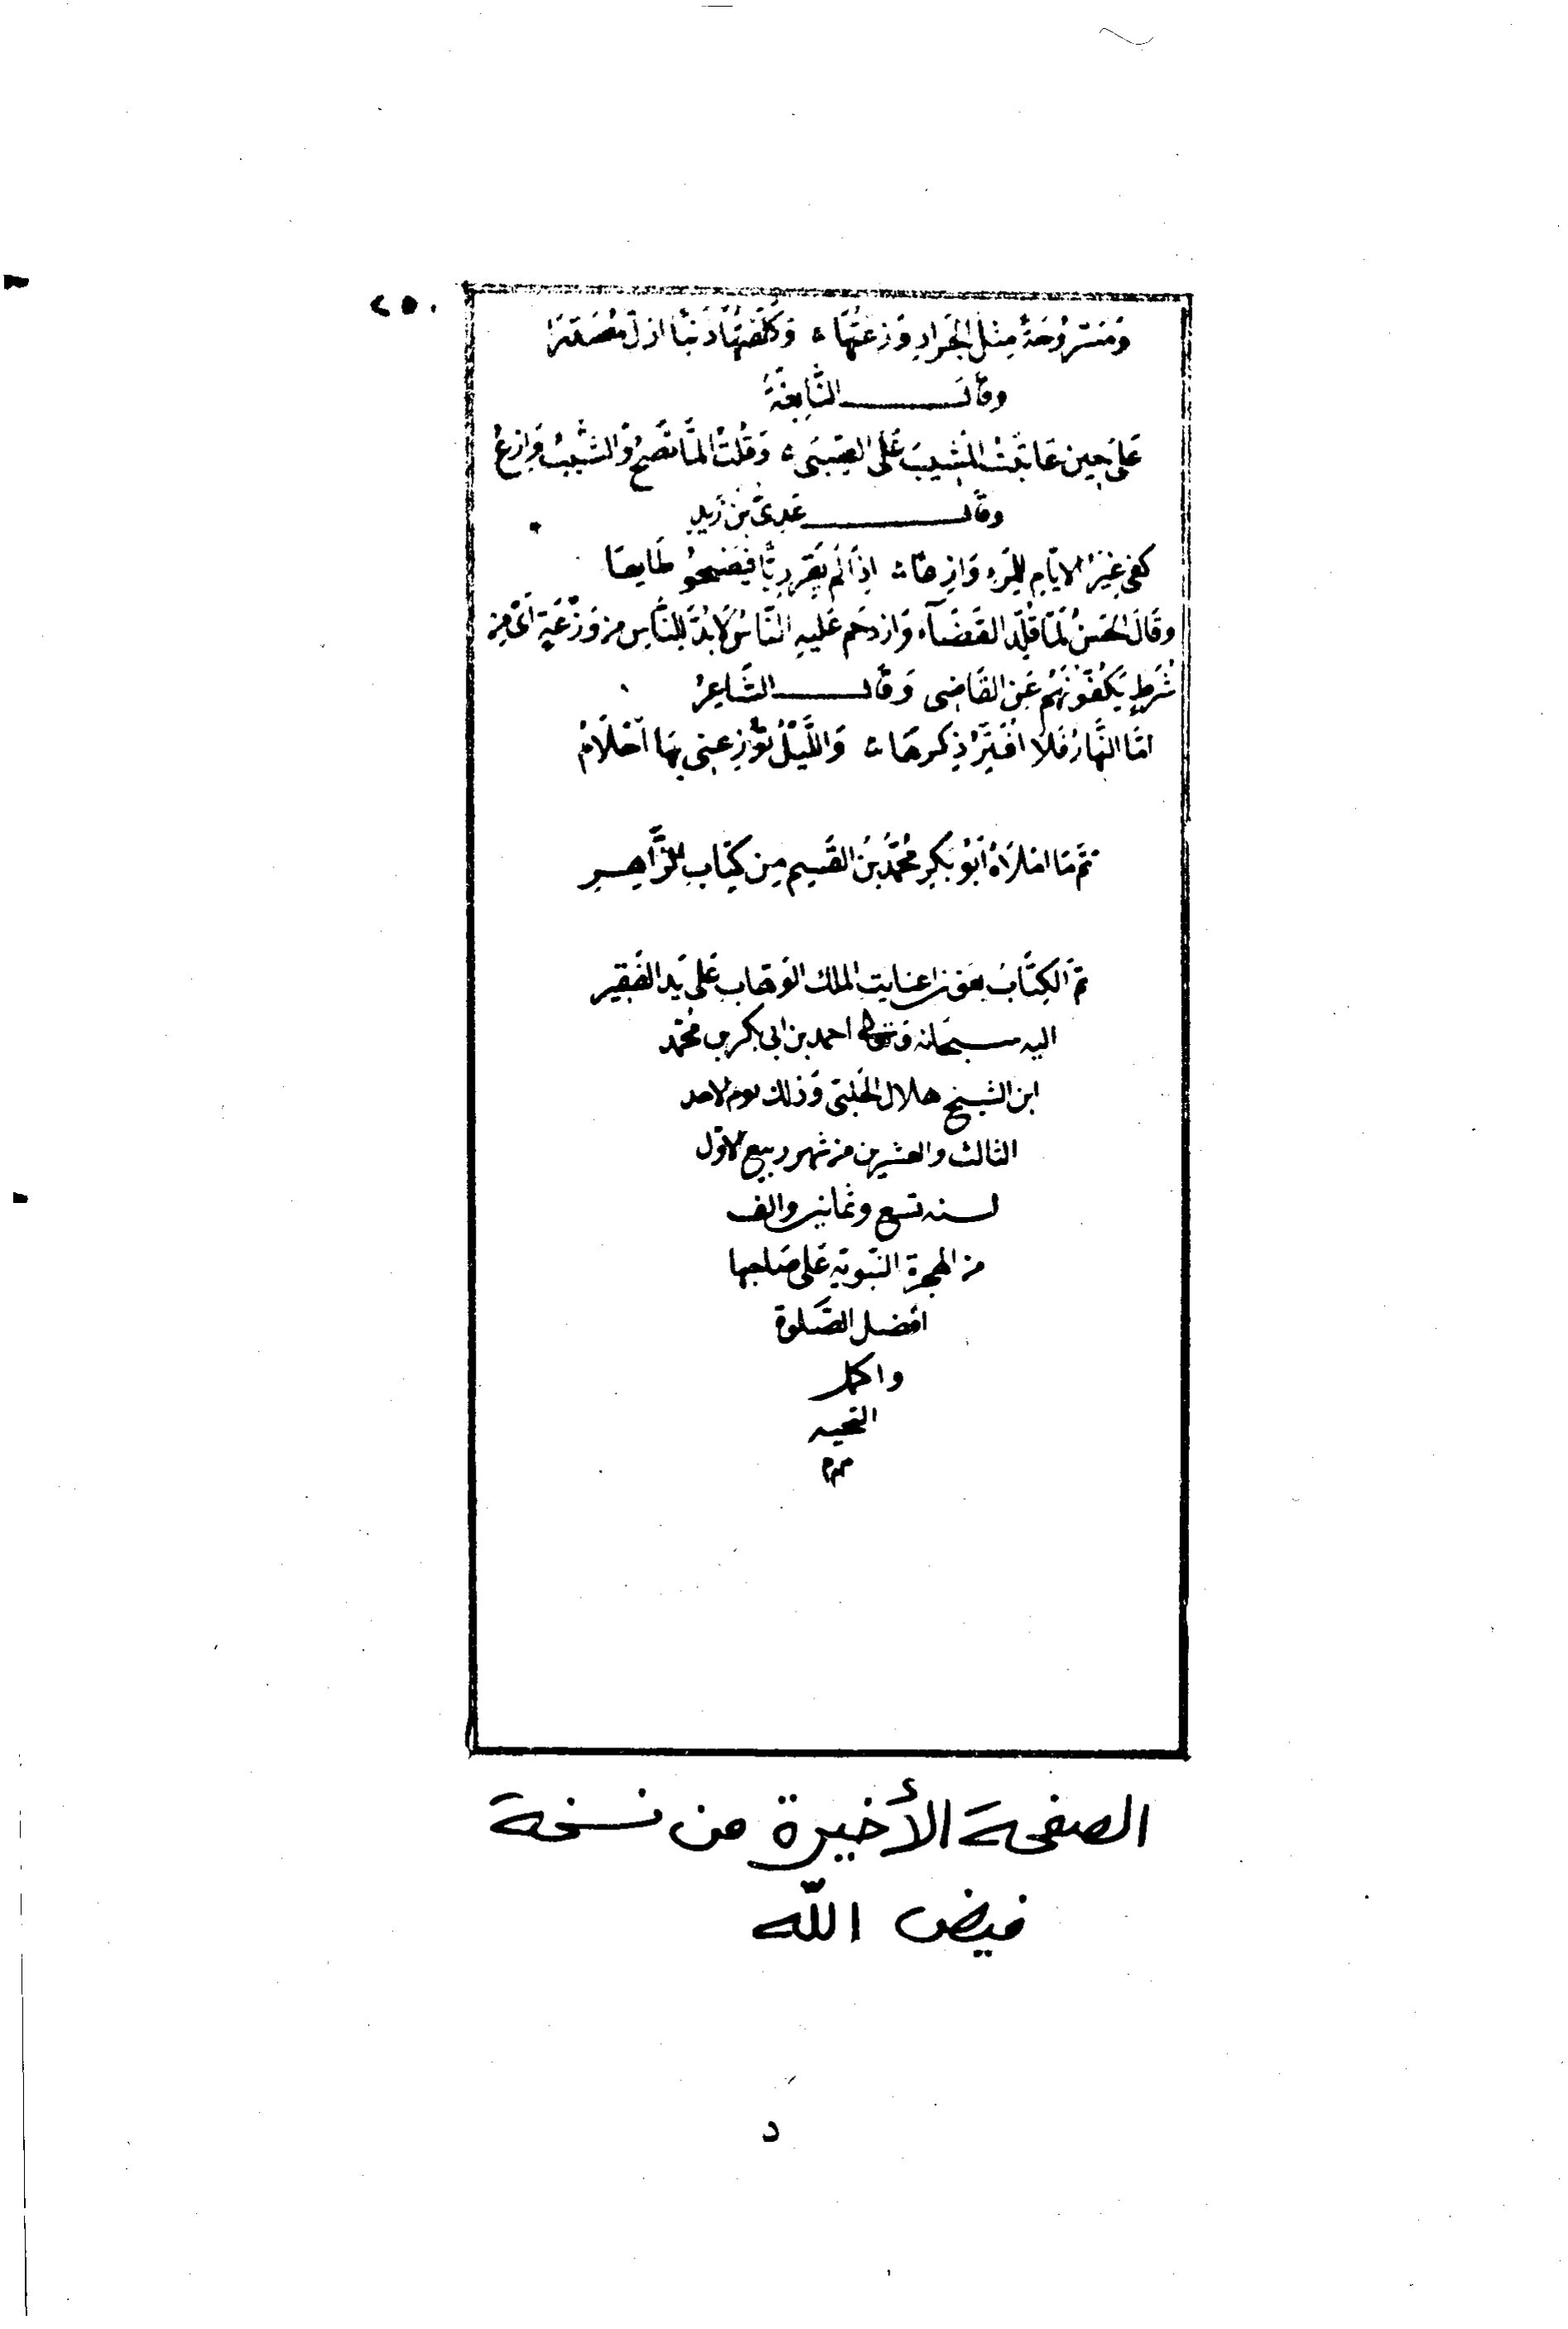 ٢٥٠
وَمَسْرُوحَةٍ مِثْلِ الجَرَادِ وَزَعْتُهَا ۞ وَكَلَّفْتُهَا ذِئْبًا ازلّ مُصَدَّرَا
وقال النَّابِغَةُ
عَلَى حِينَ عَاتَبْتُ المَشِيبَ عَلَى الصِّبَى ۞ وَقُلْتُ المَّا تَصْحُ وَالشَّيْبُ وَازِعُ
وقال عَدِيّ بْن زَيدٍ
كفى غِيَرُ الايّامِ لِلمَرءِ وَازِعَا ۞ اِذَا لَم يَقِرْ رِيًّا فَيَصْحُو طَايعَا
وقَالَ الحَسَنُ لمّا قُلِّدَ القَضَآءَ وَازدحَم عَليهِ النَّاسُ لَابُدَّ لِلنَّاسِ من وَزَعَةٍ اَىْ مِن
شُرَطٍ يَكُفّوُنَهُم عَنِ القَاضِى وَقَال الشَّاعِرُ
امَّا النَّهَارُ فَلَا اُفَتِّرُ ذِكرهَا ۞ وَاللَّيْلُ تُوْزِعنِى بِهَا اَحْلَامُ
تمّ مَا املَاهُ اَبُو بَكرٍ مُحَمَّدُ بْنُ القَسِمِ مِن كِتَابِ الزَّاهِرِ
تمّ الكِتَابُ بعَون عنايت الملك الوَهّاب عَلى يَد الفَقير
اليه سبحَانه وَتعالى احمد بن ابى بكر بن محمّد
ابن الشيخ هلال الحَلبىّ وَذلك يوم الاحد
الثالث والعشرين من شهر ربيع الاوّل
لسنه تسع وثمانين والف
من الهجرة النَبَوِيّه عَلى صَاحبها
افضل الصَّلوة
واكمل
التحيه
ممم
الصفحة الأخيرة من نسخة
فيض اللّه
د